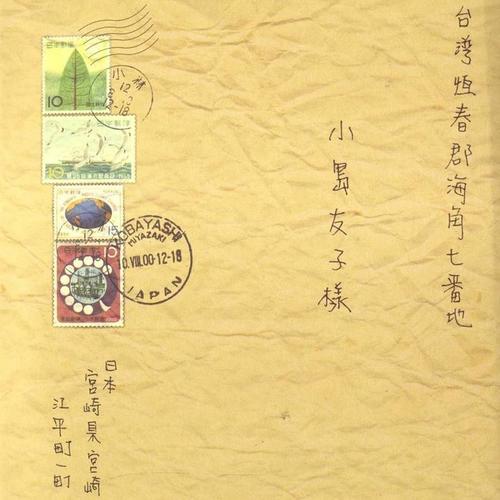 台灣恆春郡海角七番地
小島友子様
日本
宮崎県宮崎
江平町一町
日本郵便
10
小林
12
12-18
10
日本郵便
15
12
15
KOBAYASHI
MIYAZAKI
10.VIII.00-12-18
JAPAN